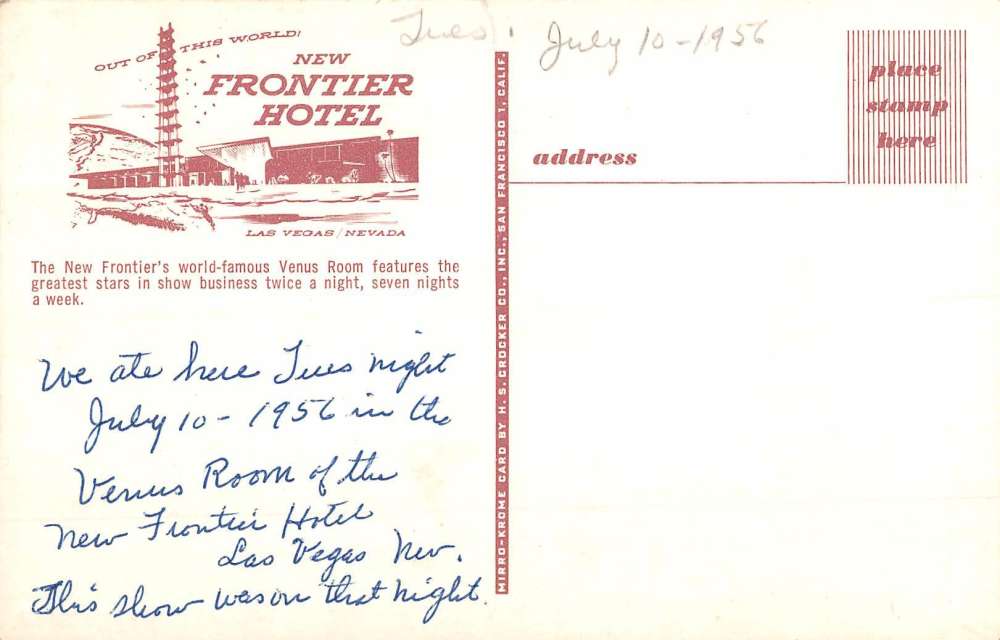 OUT OF THIS WORLD!
NEW
FRONTIER
HOTEL
LAS VEGAS/NEVADA
The New Frontier's world-famous Venus Room features the
greatest stars in show business twice a night, seven nights
a week.
We ate here Tues night
July 10 - 1956 in the
Venus Room of the
New Frontier Hotel
Las Vegas Nev.
This show was on that night.
MIRRO-KROME CARD BY H. S. CROCKER CO., INC., SAN FRANCISCO 1, CALIF.
Tues. July 10-1956
place
stamp
here
address